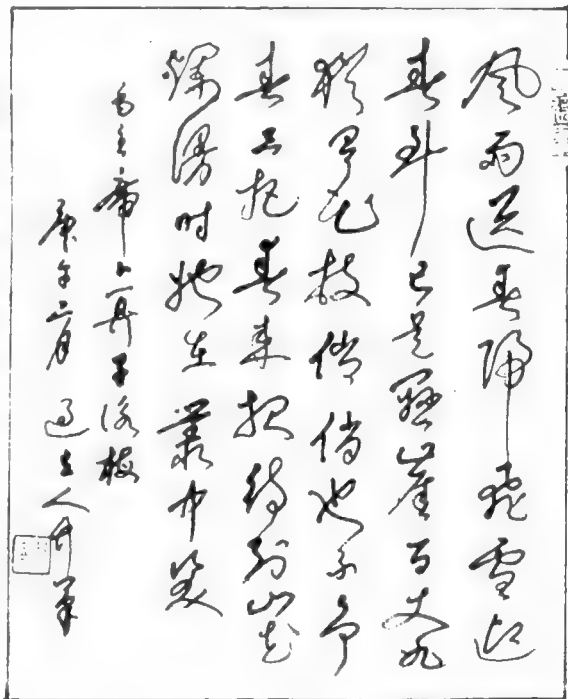 風雨送春歸飛雪迎
春到已是懸崖百丈冰
猶有花枝俏俏也不争
春只把春来报待到山花
爛漫时她在叢中笑
毛主席卜算子咏梅
庚午二月